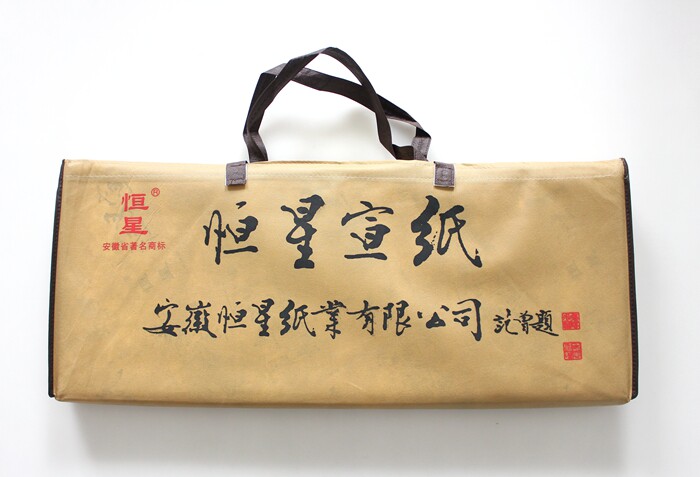 恒星®
安徽省著名商标
恒星宣纸
安徽恒星纸業有限公司 范曾题